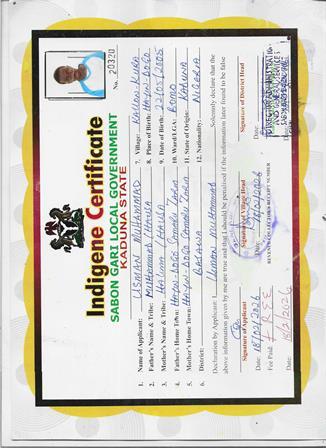 No. 20320
Indigene Certificate
SABON GARI LOCAL GOVERNMENT
KADUNA STATE
1. Name of Applicant: USMAN MUHAMMAD
2. Father's Name & Tribe: Muhammad / Hausa
3. Mother's Name & Tribe: / Hausa
4. Father's Home Town: HAYIN-DOGO Samaru Zaria
5. Mother's Home Town: HAYIN-DOGO Samaru Zaria
6. District: BASAWA
7. Village:
8. Place of Birth: HAYIN-DOGO
9. Date of Birth: 22/05/2005
10. Ward/LGA: BOMO
11. State of Origin: KADUNA
12. Nationality: NIGERIA
Declaration by Applicant: I Usman Muhammad Solemnly declare that the
above information given by me are true and that I should be penalised if the information later found to be false
Signature of Applicant
Date: 18/02/2026
Signature of Village Head
Date: 18/02/2026
Signature of District Head
Date:
Fee Paid: FREE
REVENUE COLLECTOR'S RECEIPT NUMBER
Date: 18/2/2026